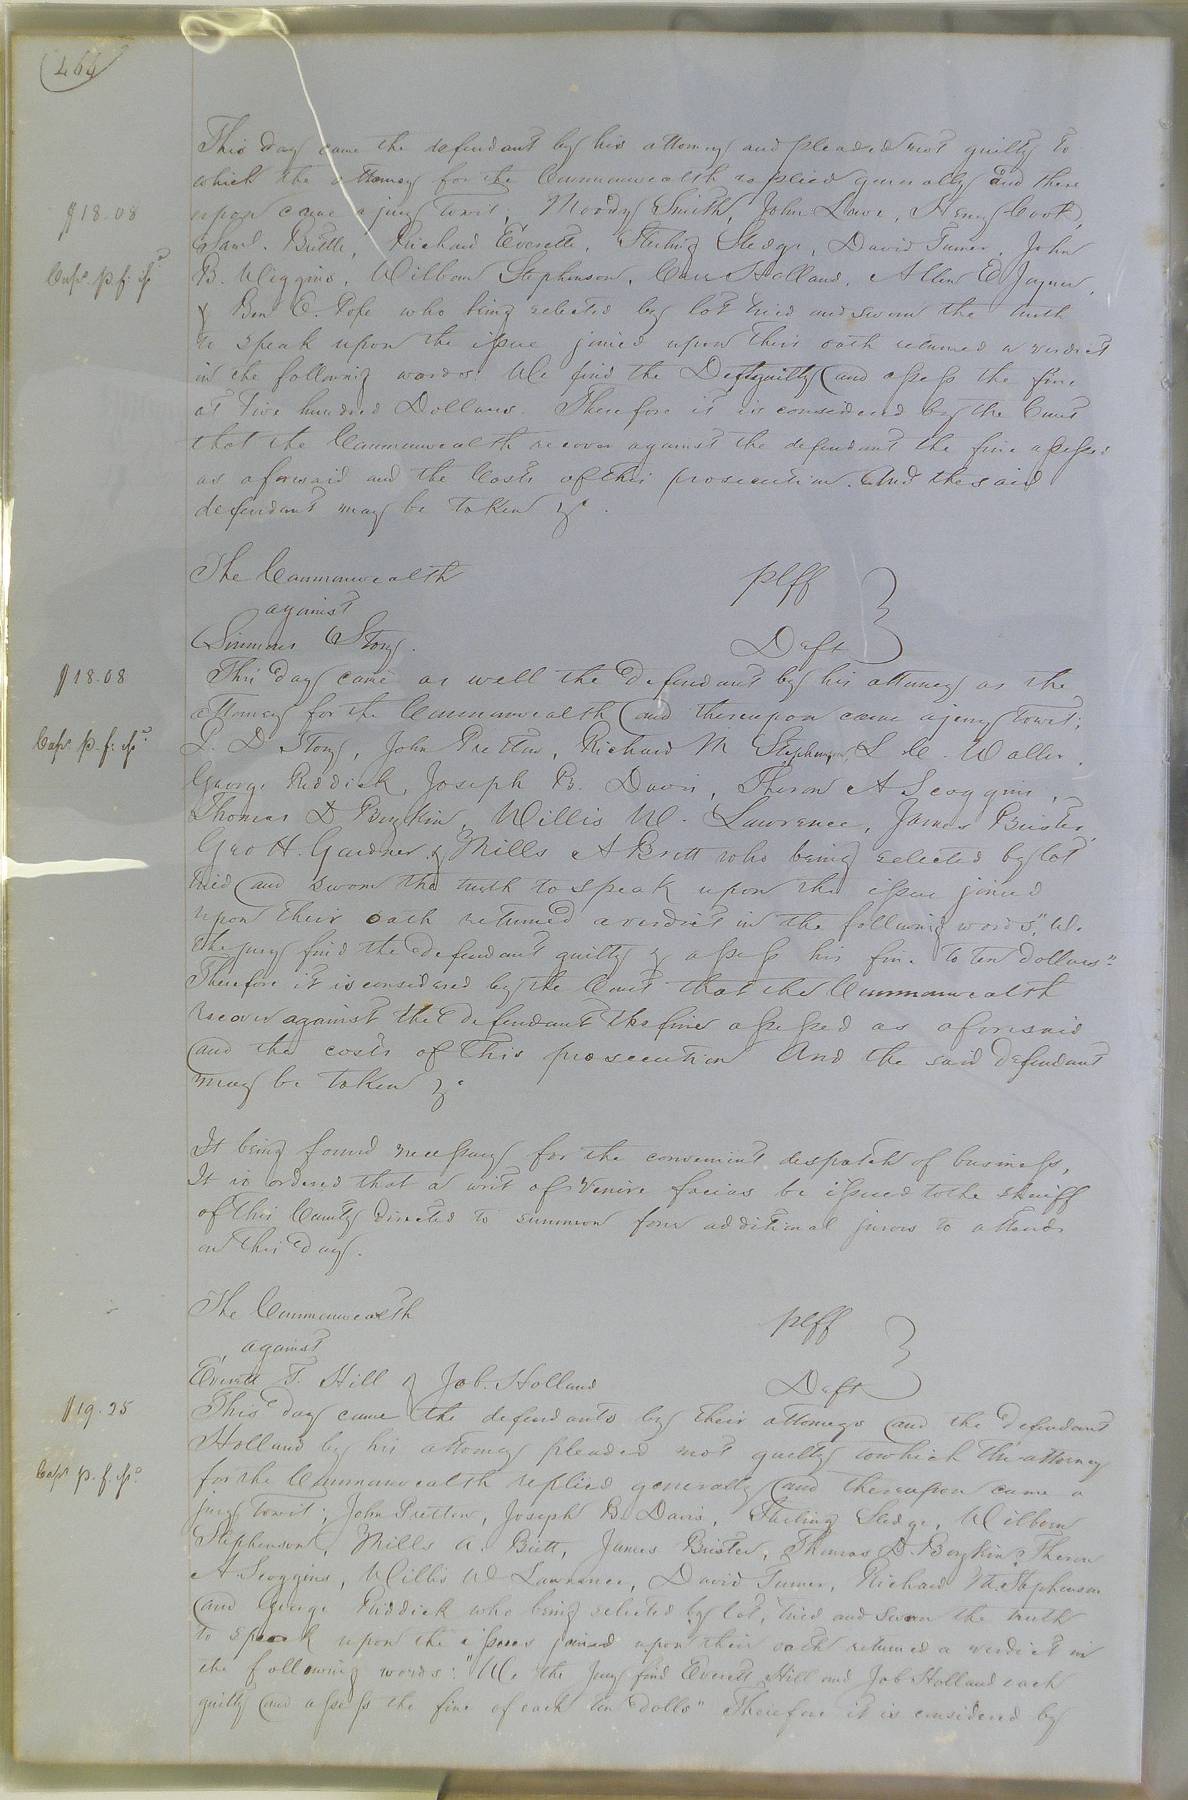 464
This day came the defendant by his attorney and pleaded not guilty to
which the attorney for the Commonwealth replied generally and there
$18.08
upon came a jury towit, Moody Smith, John Lowe, Henry Cook,
Saml. Brittle, Richard Everette, Sterling Sledge, David Turner, John
Caps. p. f. &c
B. Wiggins, Wilborn Stephenson, Carr Holland, Allen E Joyner,
& Ben E. Pope who being selected by lot tried and sworn the truth
to speak upon the issue joined upon their oath returned a verdict
in the following words: We find the Deft guilty and assess the fine
at five hundred Dollars. Therefore it is considered by the Court
that the Commonwealth recover against the defendant the fine assessed
as aforesaid and the Costs of this prosecution. And the said
defendant may be taken &c.
The Commonwealth plff
against
Simmons Story. Deft
$18.08
This day came as well the Defendant by his attorney as the
attorney for the Commonwealth and thereupon came a jury towit;
Caps p. f. &c.
D Story, John Pretlow, Richard M Stephenson, Waller,
George Riddick, Joseph B. Davis, Theron A Scoggins,
Thomas D Boykin, Willis W. Lawrence, James Brister,
Geo H. Gardner & Mills A Britt who being selected by lot
tried and sworn the truth to speak upon the issue joined
upon their oath returned a verdict in the following words, "We
the jury find the defendant guilty & assess his fine to ten dollars"
Therefore it is considered by the Court that the Commonwealth
recover against the defendant the fine assessed as aforesaid
and the costs of this prosecution And the said defendant
may be taken &c
It being found necessary for the convenient despatch of business,
It is ordered that a writ of Venire facias be issued to the sheriff
of this County directed to summon four additional jurors to attend
on this day.
The Commonwealth plff
against
Everett T. Hill & Job. Holland Deft
$19.25
This day came the defendants by their attorneys and the defendant
Holland by his attorney pleaded not guilty to which the attorney
Caps p. f. &c.
for the Commonwealth replied generally and thereupon came a
jury towit; John Pretlow, Joseph B. Davis, Sterling Sledge, Wilborn
Stephenson, Mills A. Britt, James Brister, Thomas D. Boykin, Theron
A Scoggins, Willis W Lawrence, David Turner, Richard M. Stephenson
and George Riddick who being selected by lot, tried and sworn the truth
to speak upon the issues joined upon their oath returned a verdict in
the following words: "We the Jury find Everett Hill and Job Holland each
guilty and assess the fine of each ten dolls" Therefore it is considered by